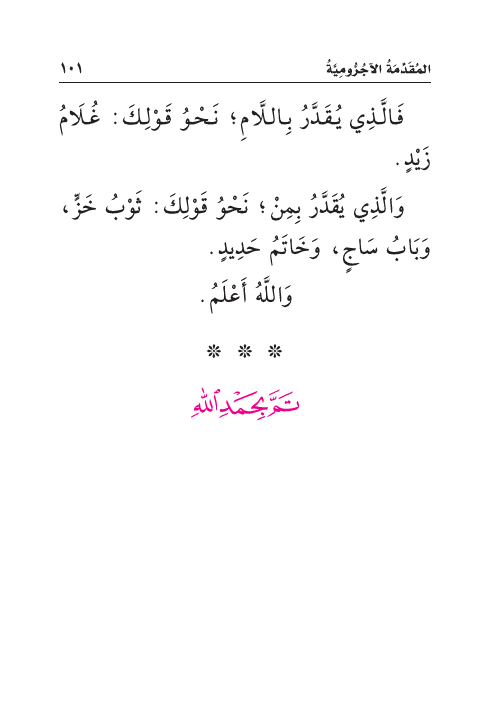 المُقَدِّمَةُ الآجُرُّومِيَّةُ ١٠١
فَالَّذِي يُقَدَّرُ بِاللَّامِ؛ نَحْوُ قَوْلِكَ: غُلَامُ
زَيْدٍ.
وَالَّذِي يُقَدَّرُ بِمِنْ؛ نَحْوُ قَوْلِكَ: ثَوْبُ خَزٍّ،
وَبَابُ سَاجٍ، وَخَاتَمُ حَدِيدٍ.
وَاللَّهُ أَعْلَمُ.
تَمَّ بِحَمْدِ اللهِ